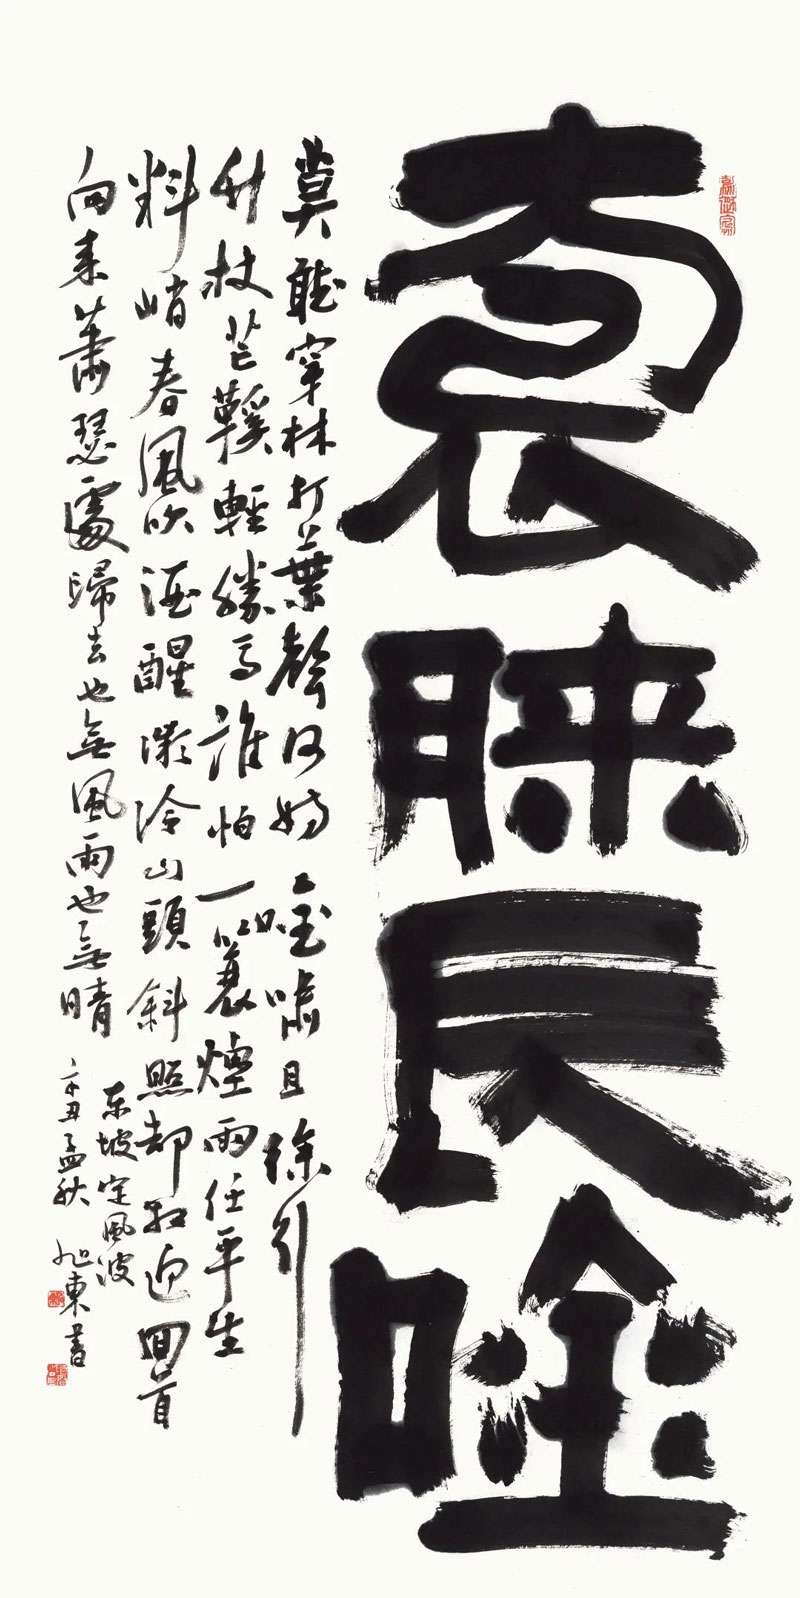 袌膝長唫
莫聽穿林打葉聲何妨唫嘯且徐行
竹杖芒鞵輕勝馬誰怕一蓑煙雨任平生
料峭春風吹酒醒微冷山頭斜照却相迎回首
向来蕭瑟處歸去也無風雨也無晴
东坡定風波
辛丑孟秋旭東書